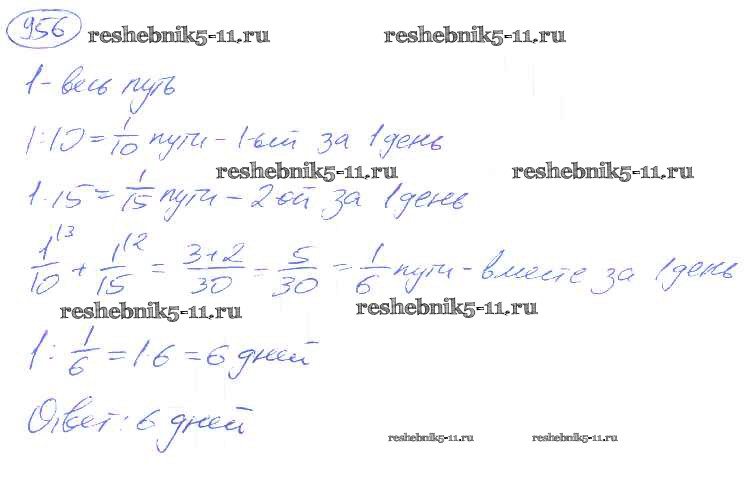 956 reshebnik5-11.ru reshebnik5-11.ru
1 - весь путь
1:10 = 1/10 пути - 1-ый за 1 день
reshebnik5-11.ru reshebnik5-11.ru
1:15 = 1/15 пути - 2-ой за 1 день
1/10 \3 + 1/15 \2 = 3+2/30 = 5/30 = 1/6 пути - вместе за 1 день
reshebnik5-11.ru reshebnik5-11.ru
1 : 1/6 = 1·6 = 6 дней
Ответ: 6 дней
reshebnik5-11.ru reshebnik5-11.ru